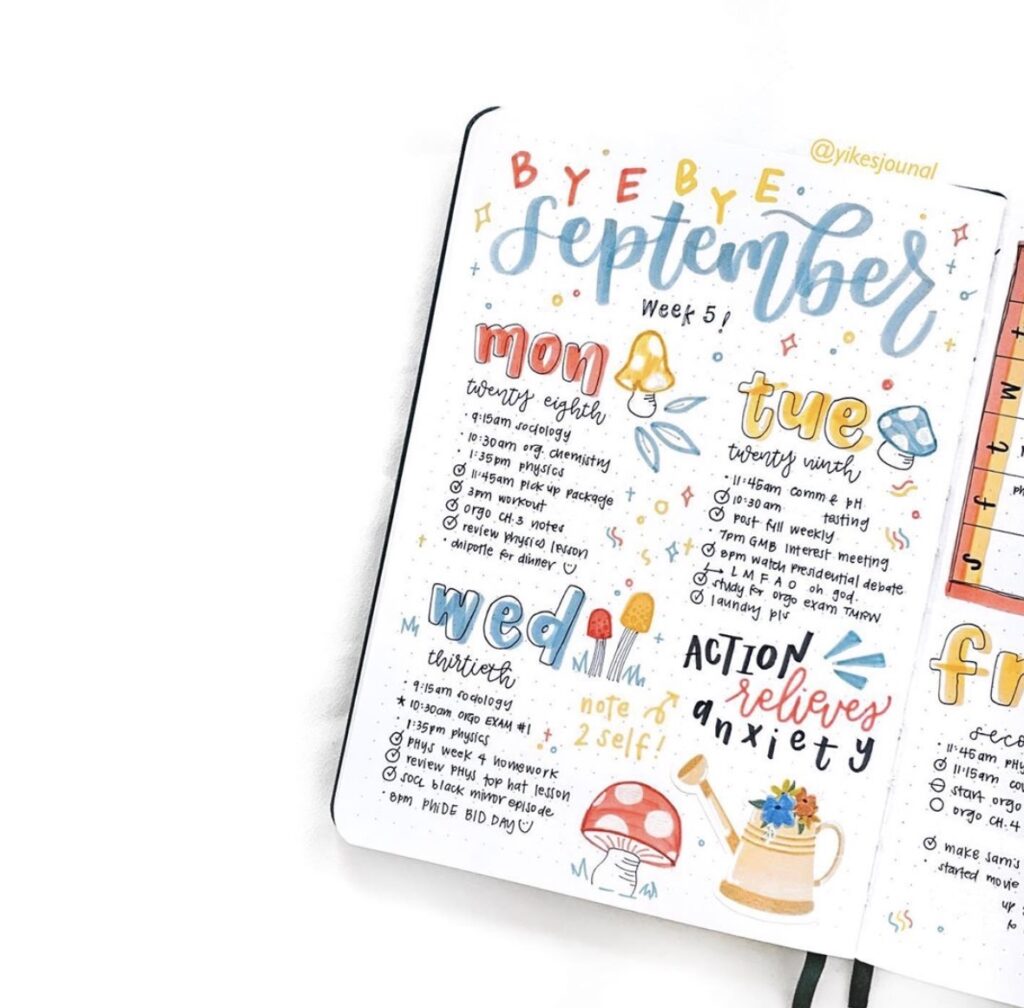 @yikesjounal
BYE BYE
September
Week 5!
mon
twenty eighth
• 9:15am sociology
• 10:30am org. chemistry
• 1:35pm physics
11:45am pick up package
3pm workout
orgo CH.3 notes
review physics lesson
• chipotle for dinner
tue
twenty ninth
• 11:45am comm & pH
10:30am tasting
post fall weekly
• 7pm GMB interest meeting
8pm watch presidential debate
LMFAO oh god.
study for orgo exam TMRW
laundry pls
wed
thirtieth
• 9:15am sociology
* 10:30am orgo EXAM #1
• 1:35pm physics
PHYS week 4 homework
review PHYS top hat lesson
socl black mirror episode
• 8pm PHIDE BID DAY
note
2 self!
ACTION
relieves
anxiety
t
W
t
f
S
ph
fr
• 11:45am
11:15am
start orgo
orgo CH.4
make sam's
• started movie
up
to